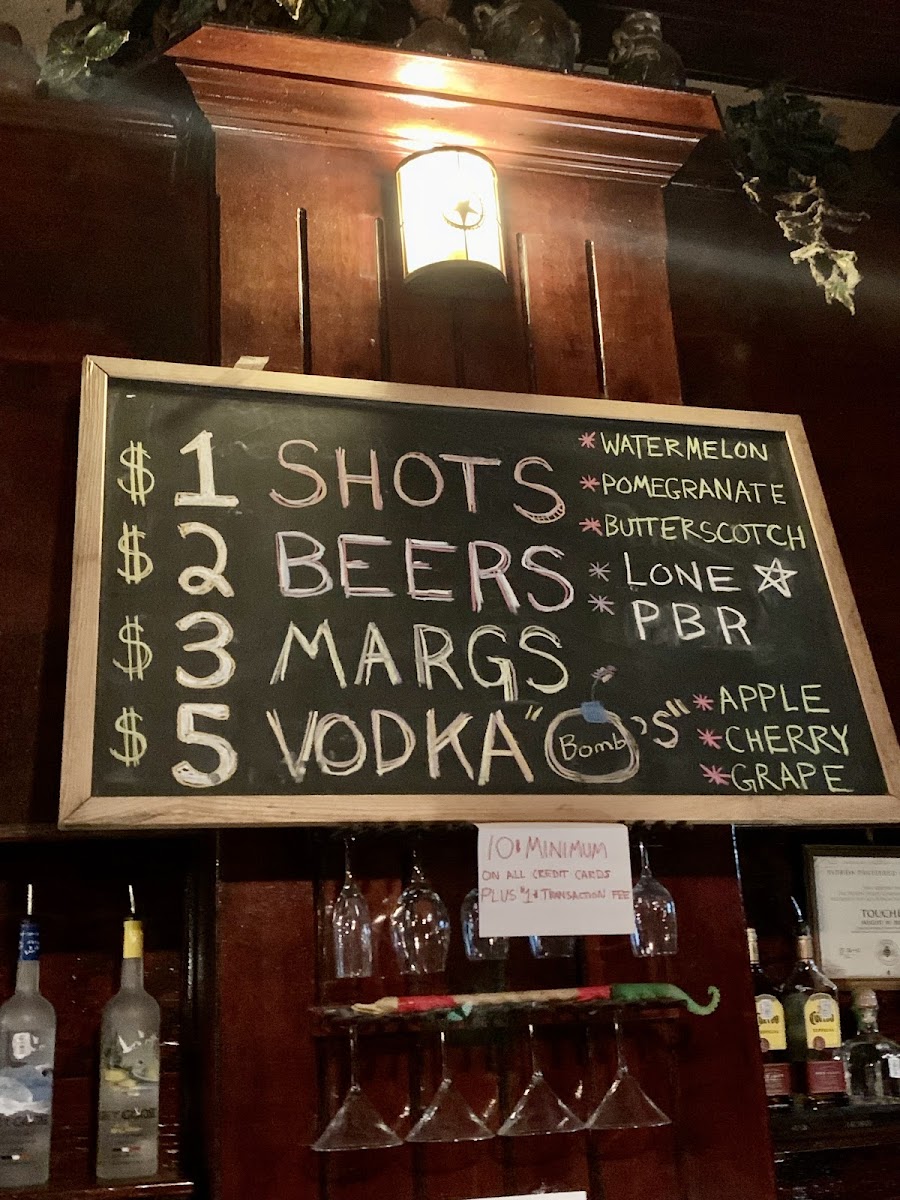 $ 1 SHOTS
* WATERMELON
* POMEGRANATE
* BUTTERSCOTCH
$ 2 BEERS
* LONE ☆
* PBR
$ 3 MARGS
$ 5 VODKA "Bomb'S"
* APPLE
* CHERRY
* GRAPE
10$ MINIMUM
ON ALL CREDIT CARDS
PLUS $1 TRANSACTION FEE
TOUCHE